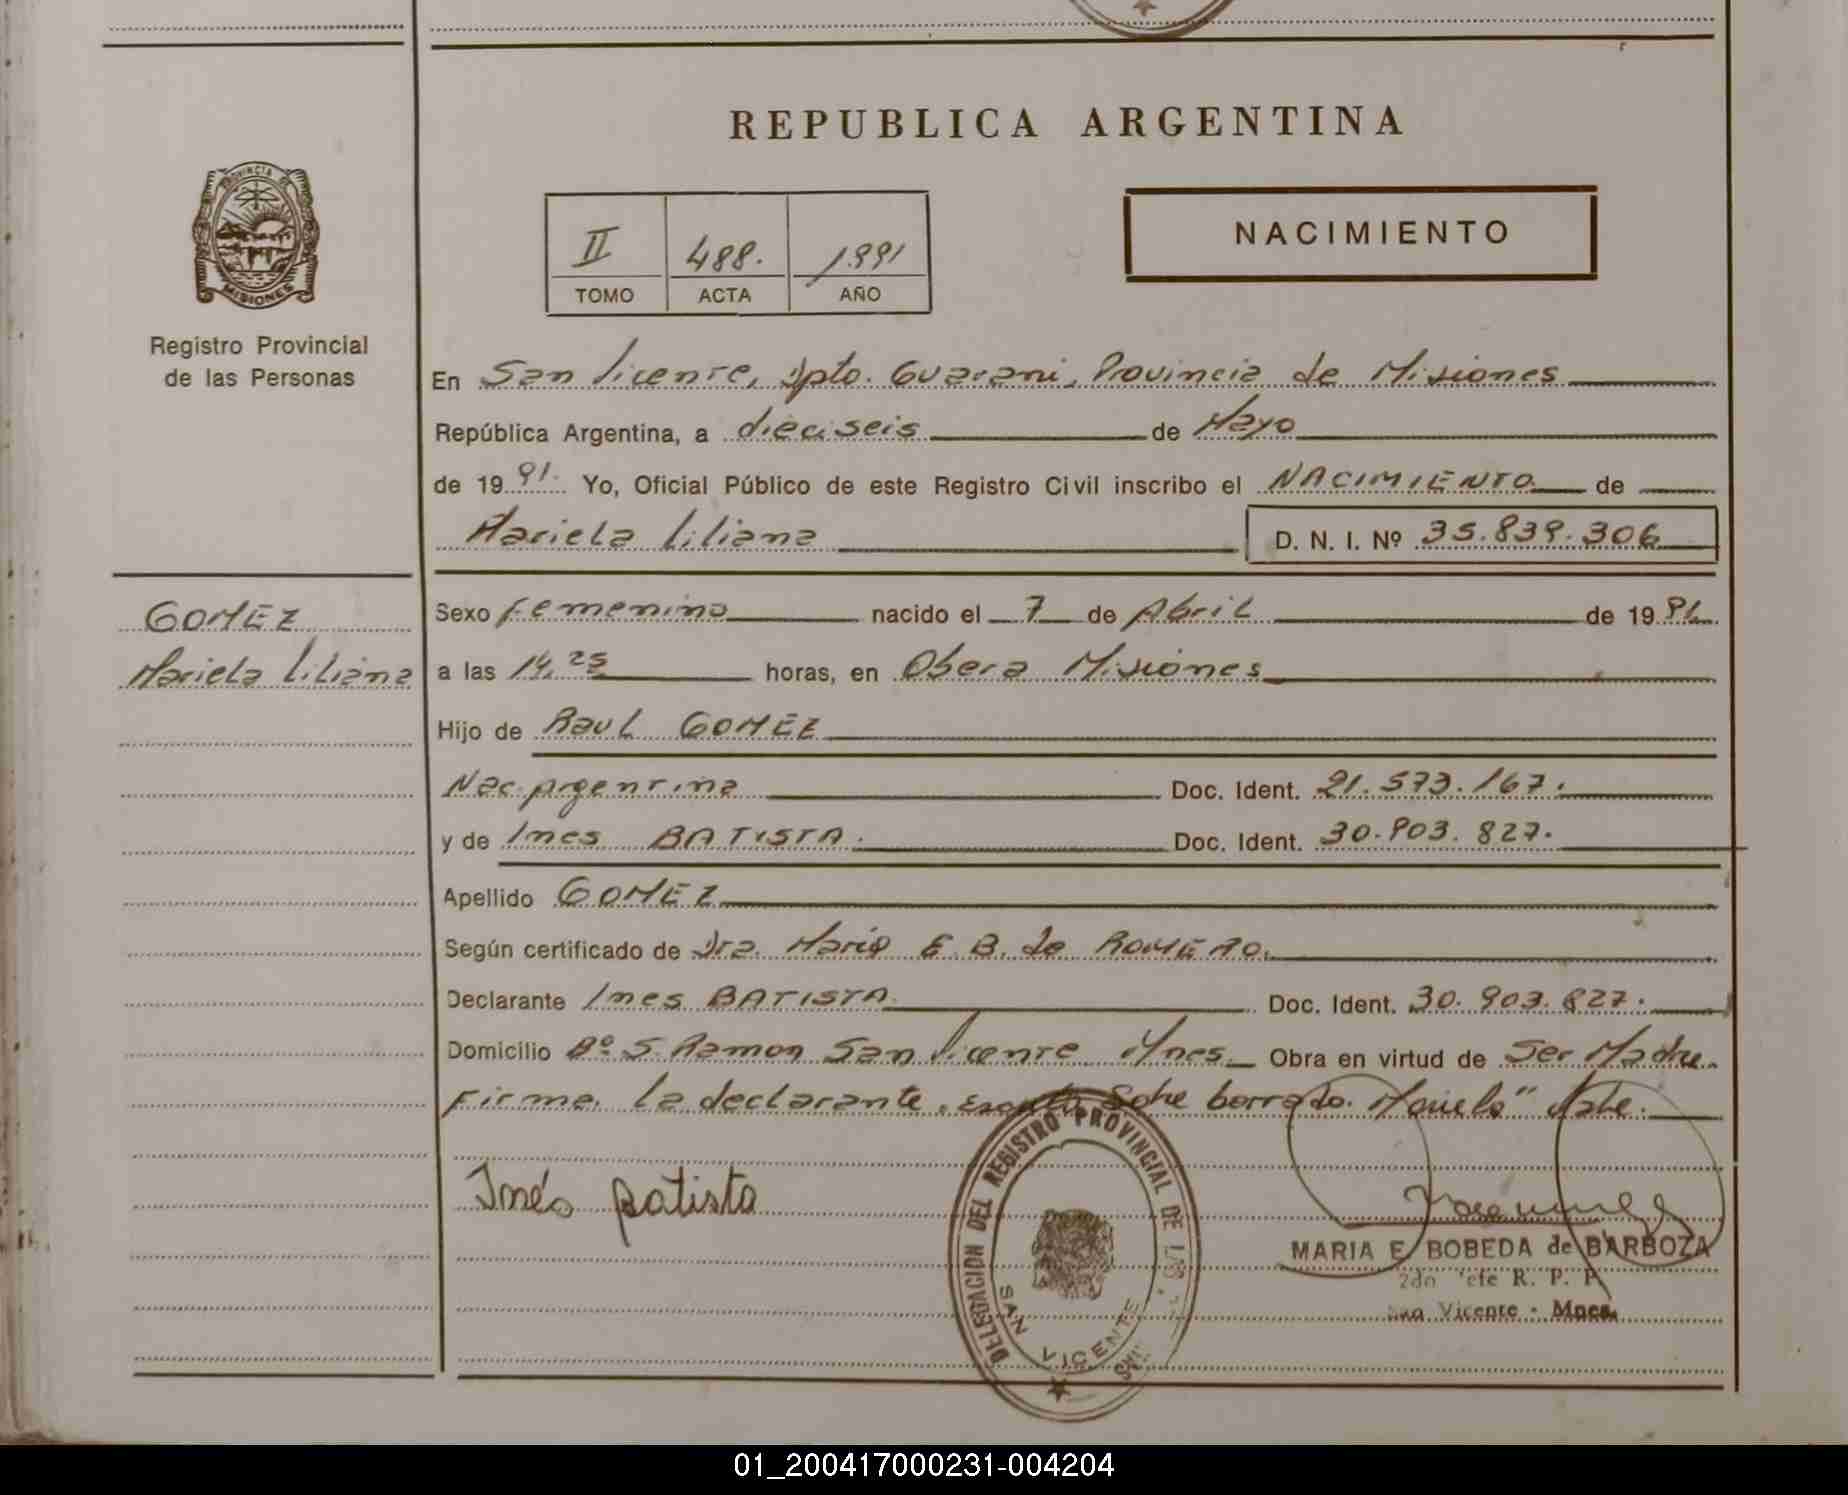 REPUBLICA ARGENTINA
PROVINCIA DE
MISIONES
Registro Provincial
de las Personas
II 488. 1991
TOMO ACTA AÑO
NACIMIENTO
En San Vicente, Dpto. Guarani, Provincia de Misiones
República Argentina, a dieciseis de Mayo
de 1991. Yo, Oficial Público de este Registro Civil inscribo el NACIMIENTO de
Mariela Liliana D. N. I. Nº 35.839.306
GOMEZ
Mariela Liliana
Sexo Femenino nacido el 7 de Abril de 1991.
a las 14,25 horas, en Obera Misiones
Hijo de Raul GOMEZ
Nac. Argentina Doc. Ident. 21.573.167.
y de Ines BATISTA. Doc. Ident. 30.903.827.
Apellido GOMEZ
Según certificado de Dra. Maria E. B. de ROMERO.
Declarante Ines BATISTA. Doc. Ident. 30.903.827.
Domicilio Bº S. Ramon San Vicente Mnes. Obra en virtud de Ser Madre
Firma la declarante. Escrito Sobre borrado. Mariela" Vale.
Inés Batista
DELEGACION DEL REGISTRO PROVINCIAL DE LAS
SAN VICENTE
MARIA E. BOBEDA de BARBOZA
2do Jefe R. P. P.
San Vicente - Mnes.
01_200417000231-004204